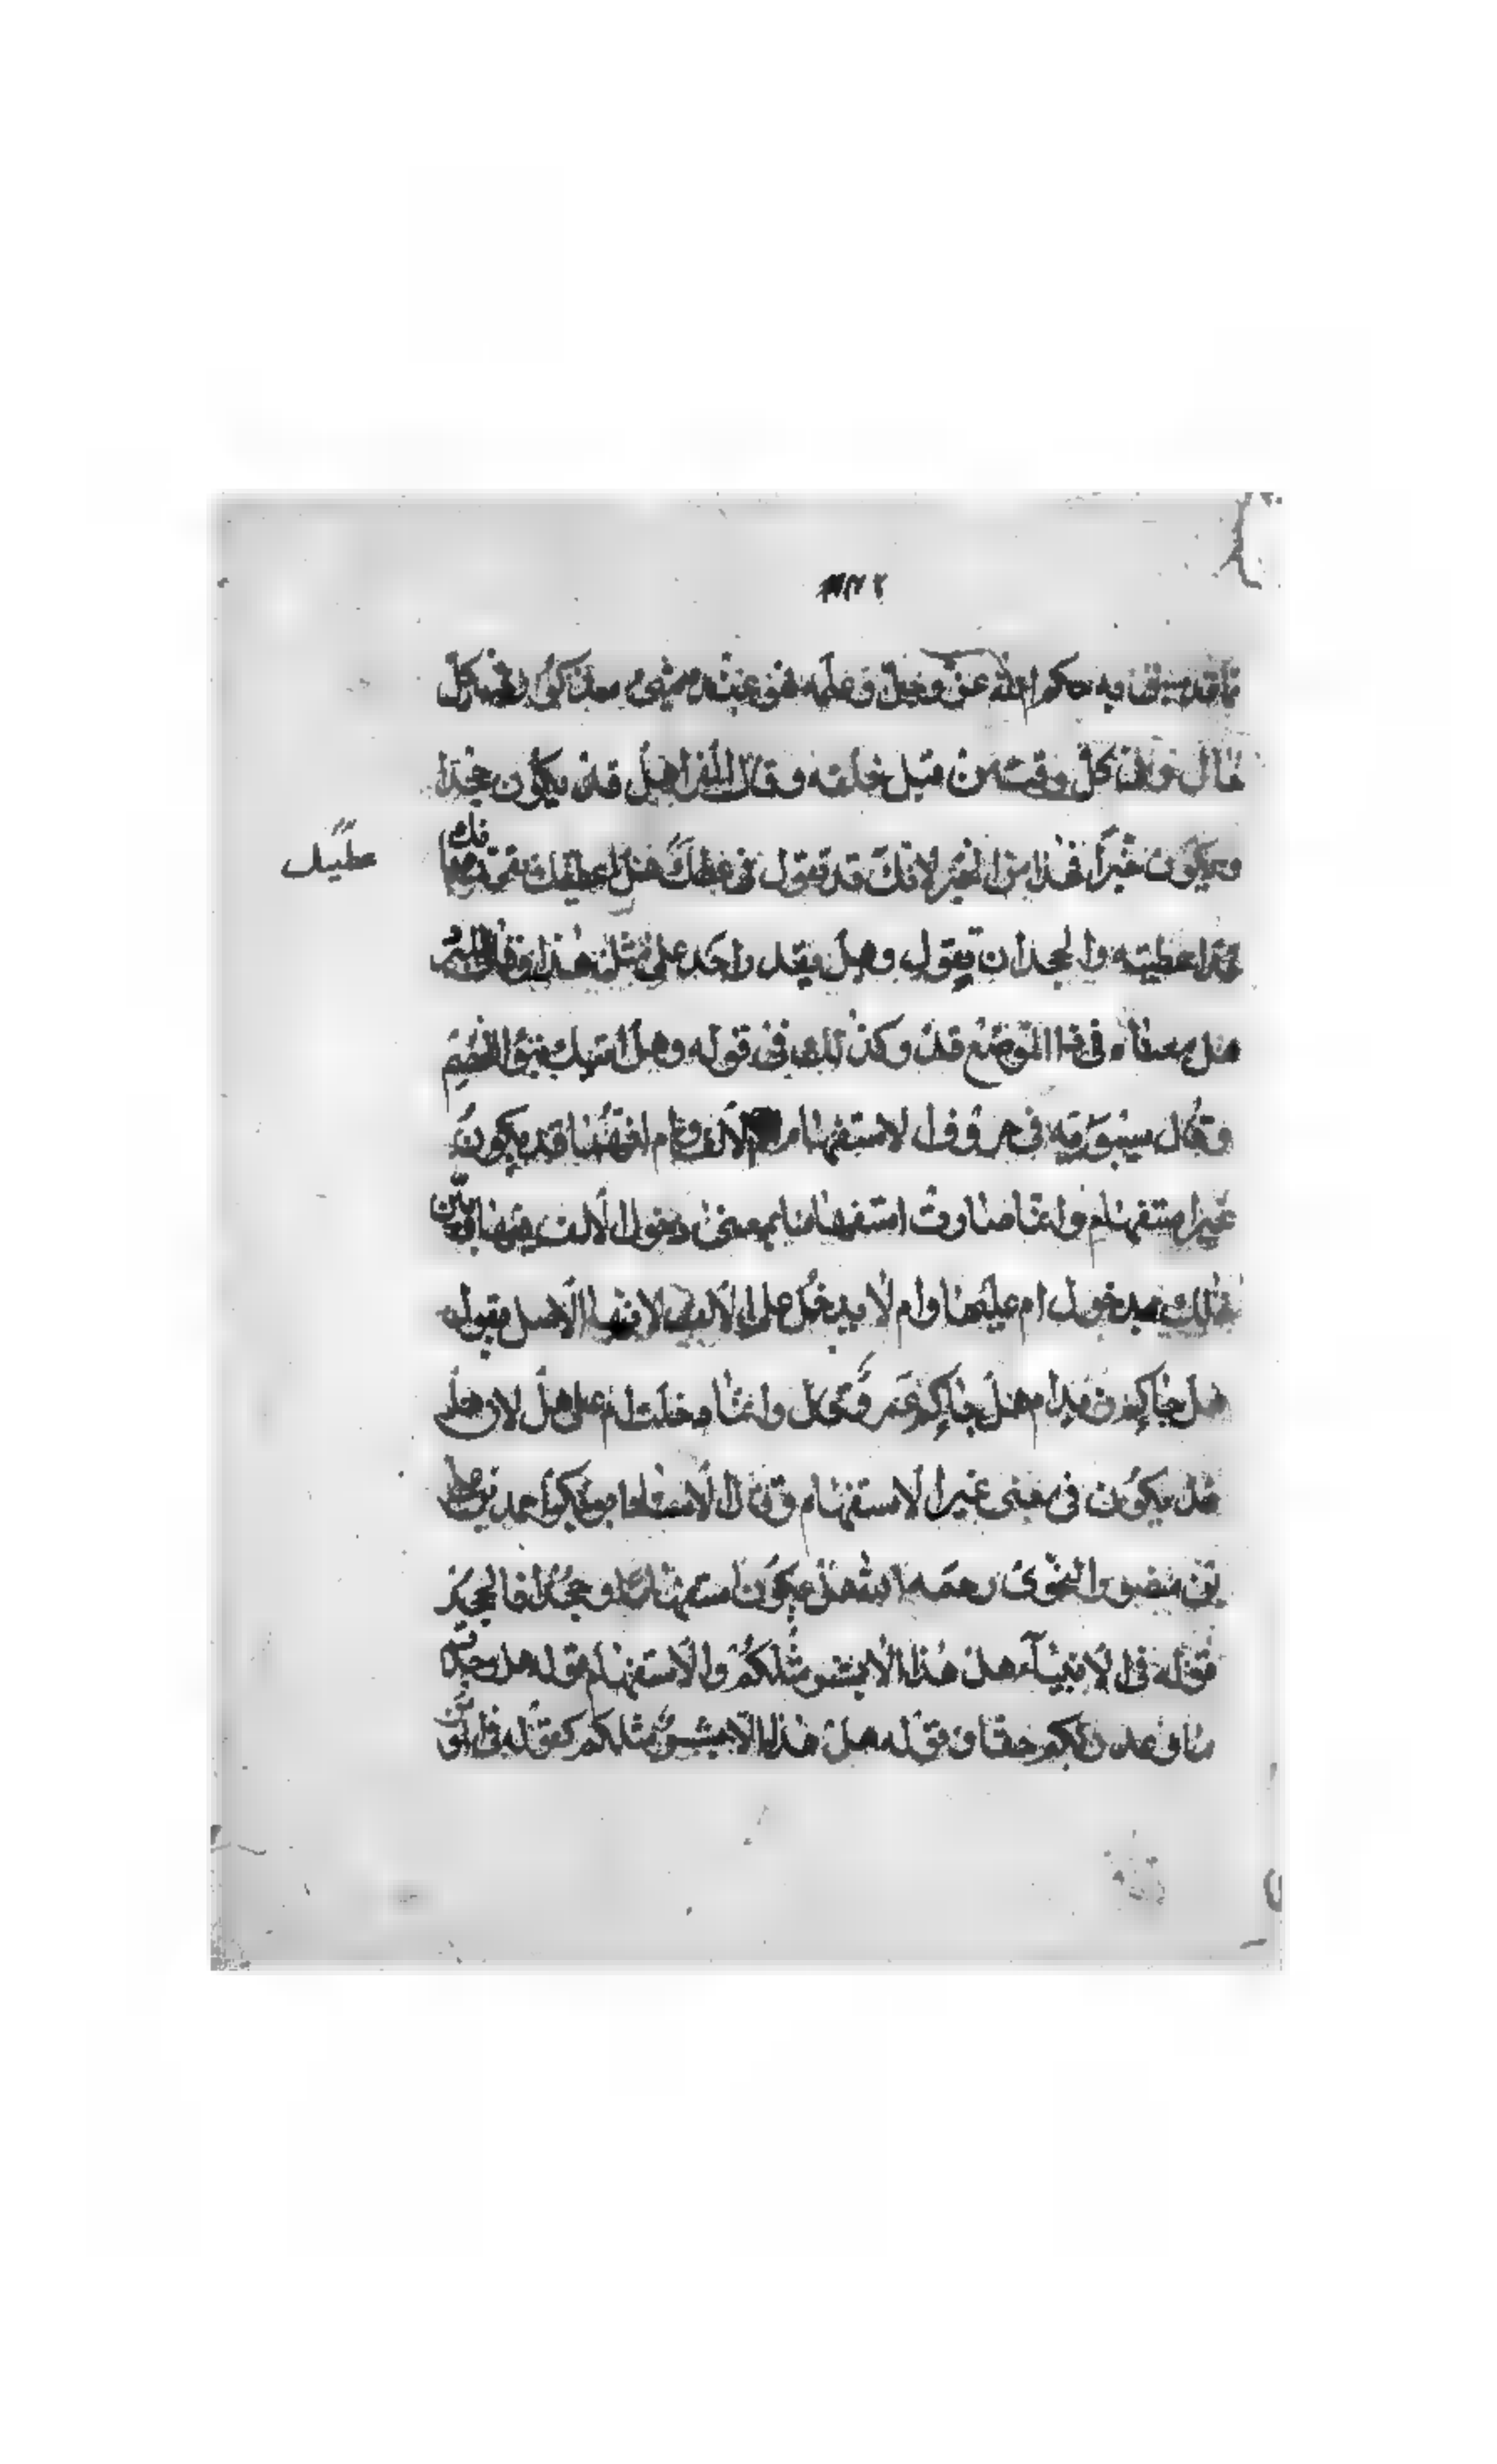 ما قد سبق به حكم الله عز وجل وعلمه فهو عنده شىء مذكور فى كل
حال وفى كل وقت من قبل خلقه وقال الفرا هل قد يكون جحدا
ويكون خبرا فهذا من الخبر لانك قد تقول فهل وعظتك هل اعطيتك
عطيتك
قد اعطيته والجحد ان تقول وهل يقدر واحد على مثل هذا وقال
هل معناه فى هذا الموضع قد وكذلك فى قوله وهل اتيك نبؤا الخصم
وقال سيبويه فى حروف الاستفهام الالف وام انهما قد يكون
غير استفهام وانما صارت استفهاما بمعنى دخول الالف فيها وتبين
ذلك بدخول ام عليها وام لا يدخل على الالف لانها الاصل تقول
هل جاكم زيد ام هل جاكم عمرو قال وانما دخلت ام على هل لان هل
قد يكون فى معنى غير الاستفهام وقال الاستاذ ابو بكر احمد بن على
بن منصور النحوى رحمه الله هل يكون استفهاما وجحدا فالجحد
قوله فى الانبياء هل هذا الا بشر مثلكم والاستفهام قوله هل وجدتم
ما وعد ربكم حقا وقوله هل هذا الا بشر مثلكم كقوله فى